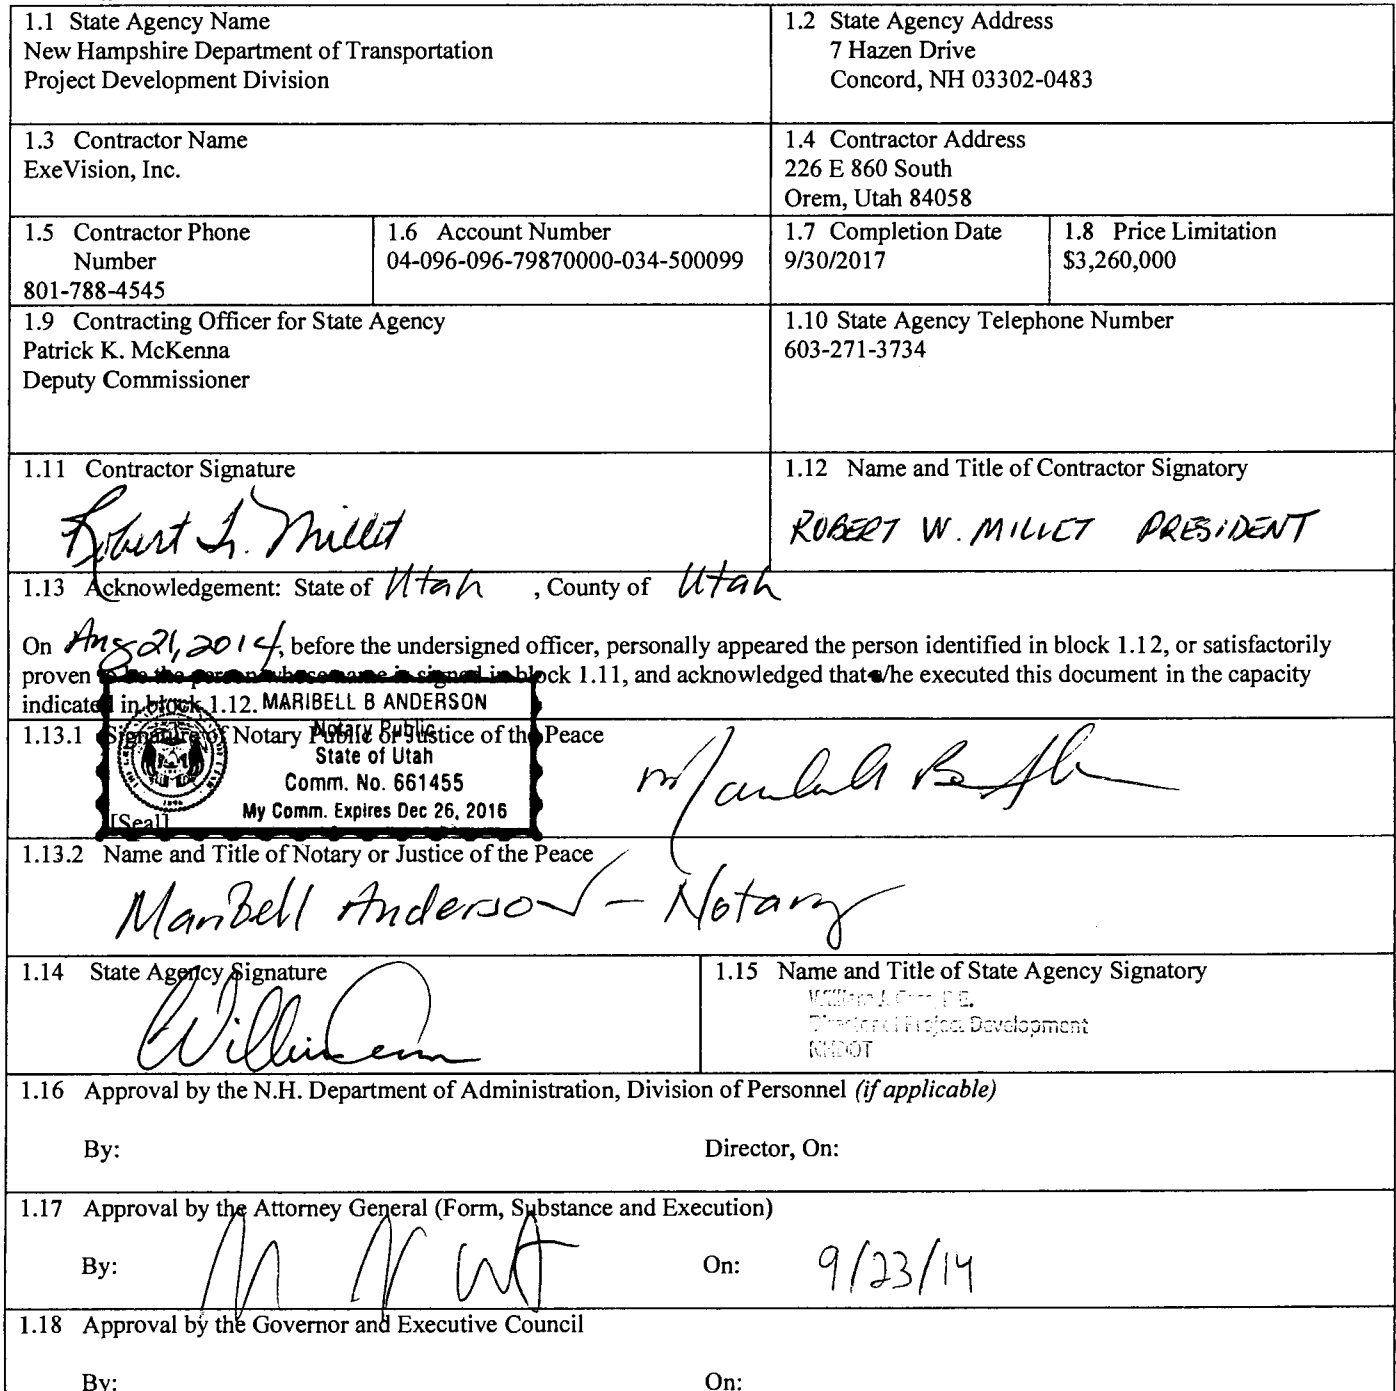 1.1 State Agency Name
New Hampshire Department of Transportation
Project Development Division
1.2 State Agency Address
7 Hazen Drive
Concord, NH 03302-0483
1.3 Contractor Name
ExeVision, Inc.
1.4 Contractor Address
226 E 860 South
Orem, Utah 84058
1.5 Contractor Phone
Number
801-788-4545
1.6 Account Number
04-096-096-79870000-034-500099
1.7 Completion Date
9/30/2017
1.8 Price Limitation
$3,260,000
1.9 Contracting Officer for State Agency
Patrick K. McKenna
Deputy Commissioner
1.10 State Agency Telephone Number
603-271-3734
1.11 Contractor Signature
Robert W. Millet
1.12 Name and Title of Contractor Signatory
ROBERT W. MILLET PRESIDENT
1.13 Acknowledgement: State of Utah , County of Utah
On Aug 21, 2014, before the undersigned officer, personally appeared the person identified in block 1.12, or satisfactorily
proven to be the person whose name is signed in block 1.11, and acknowledged that s/he executed this document in the capacity
indicated in block 1.12.
MARIBELL B ANDERSON
Notary Public
State of Utah
Comm. No. 661455
My Comm. Expires Dec 26, 2016
1.13.1 Signature of Notary Public or Justice of the Peace
[Seal]
1.13.2 Name and Title of Notary or Justice of the Peace
Maribell Anderson - Notary
1.14 State Agency Signature
1.15 Name and Title of State Agency Signatory
Project Development
NHDOT
1.16 Approval by the N.H. Department of Administration, Division of Personnel (if applicable)
By: Director, On:
1.17 Approval by the Attorney General (Form, Substance and Execution)
By: On: 9/23/14
1.18 Approval by the Governor and Executive Council
By: On: